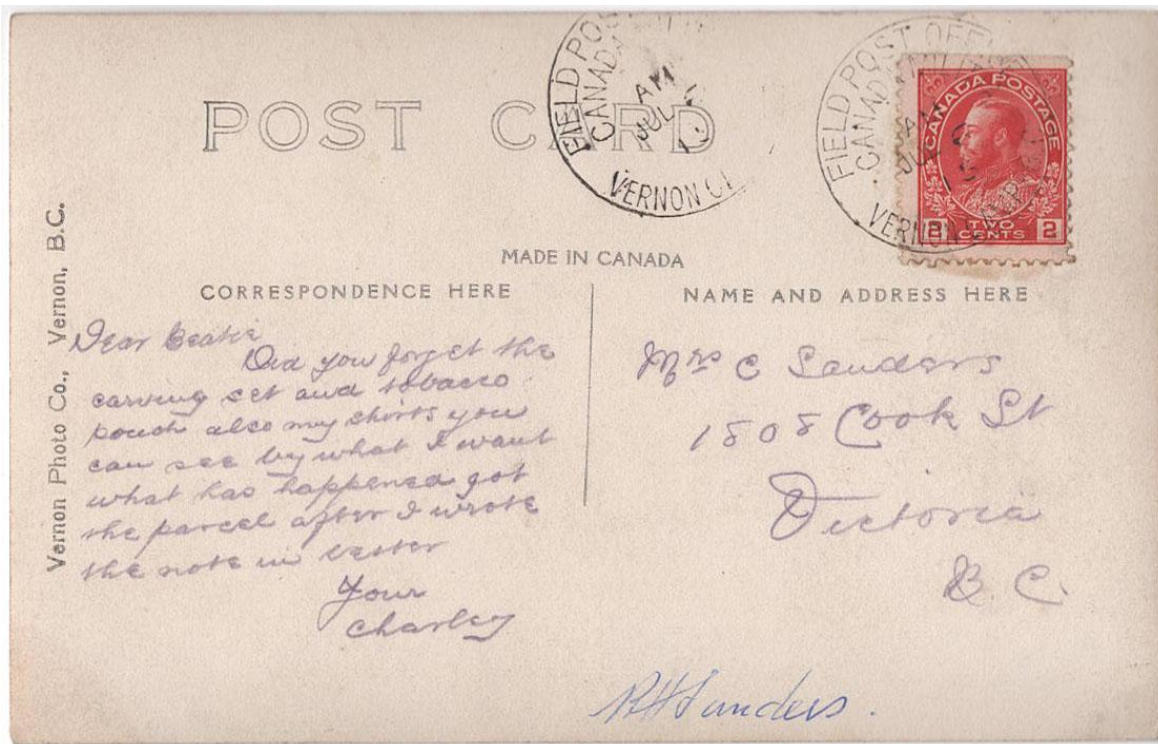 POST CARD
FIELD POST
CANADA
AM
JUL
VERNON
FIELD POST OFFICE
CANADA MILITIA
AM
VERNON CAMP
CANADA POSTAGE
2 TWO CENTS 2
Vernon Photo Co., Vernon, B.C.
MADE IN CANADA
CORRESPONDENCE HERE
NAME AND ADDRESS HERE
Dear Beatie
Did you forget the
carving set and tobacco
pouch also my shirts you
can see by what I want
what has happened got
the parcel after I wrote
the note in
Your
Charley
Mrs C Sanders
1808 Cook St
Victoria
B.C.
Sanders.